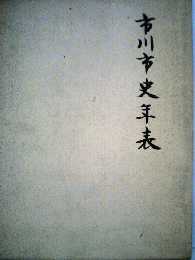 市川市史年表